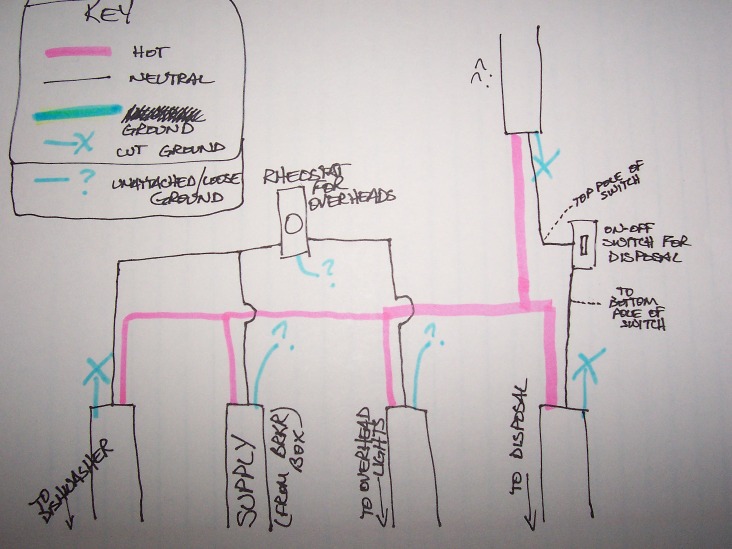 KEY
HOT
NEUTRAL
GROUND
CUT GROUND
? UNATTACHED/LOOSE
GROUND
??
RHEOSTAT
FOR
OVERHEADS
TOP POLE OF
SWITCH
ON-OFF
SWITCH FOR
DISPOSAL
?
TO
BOTTOM
POLE OF
SWITCH
?
?
TO
DISHWASHER
SUPPLY
(FROM BRKR
BOX)
TO OVERHEAD
LIGHTS
TO DISPOSAL